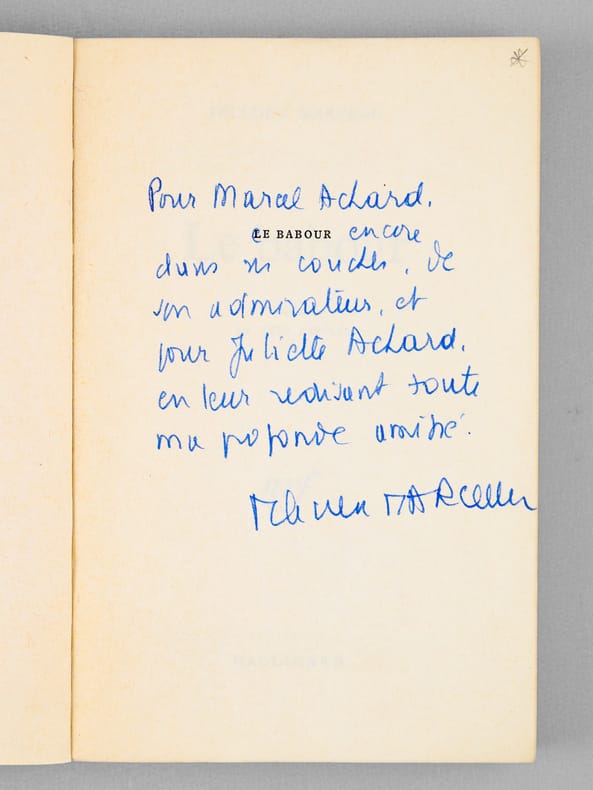 Pour Marcel Achard,
LE BABOUR encore
dans ses couches, de
son admirateur, et
pour Juliette Achard,
en leur redisant toute
ma profonde amitié.
Félicien MARCEAU